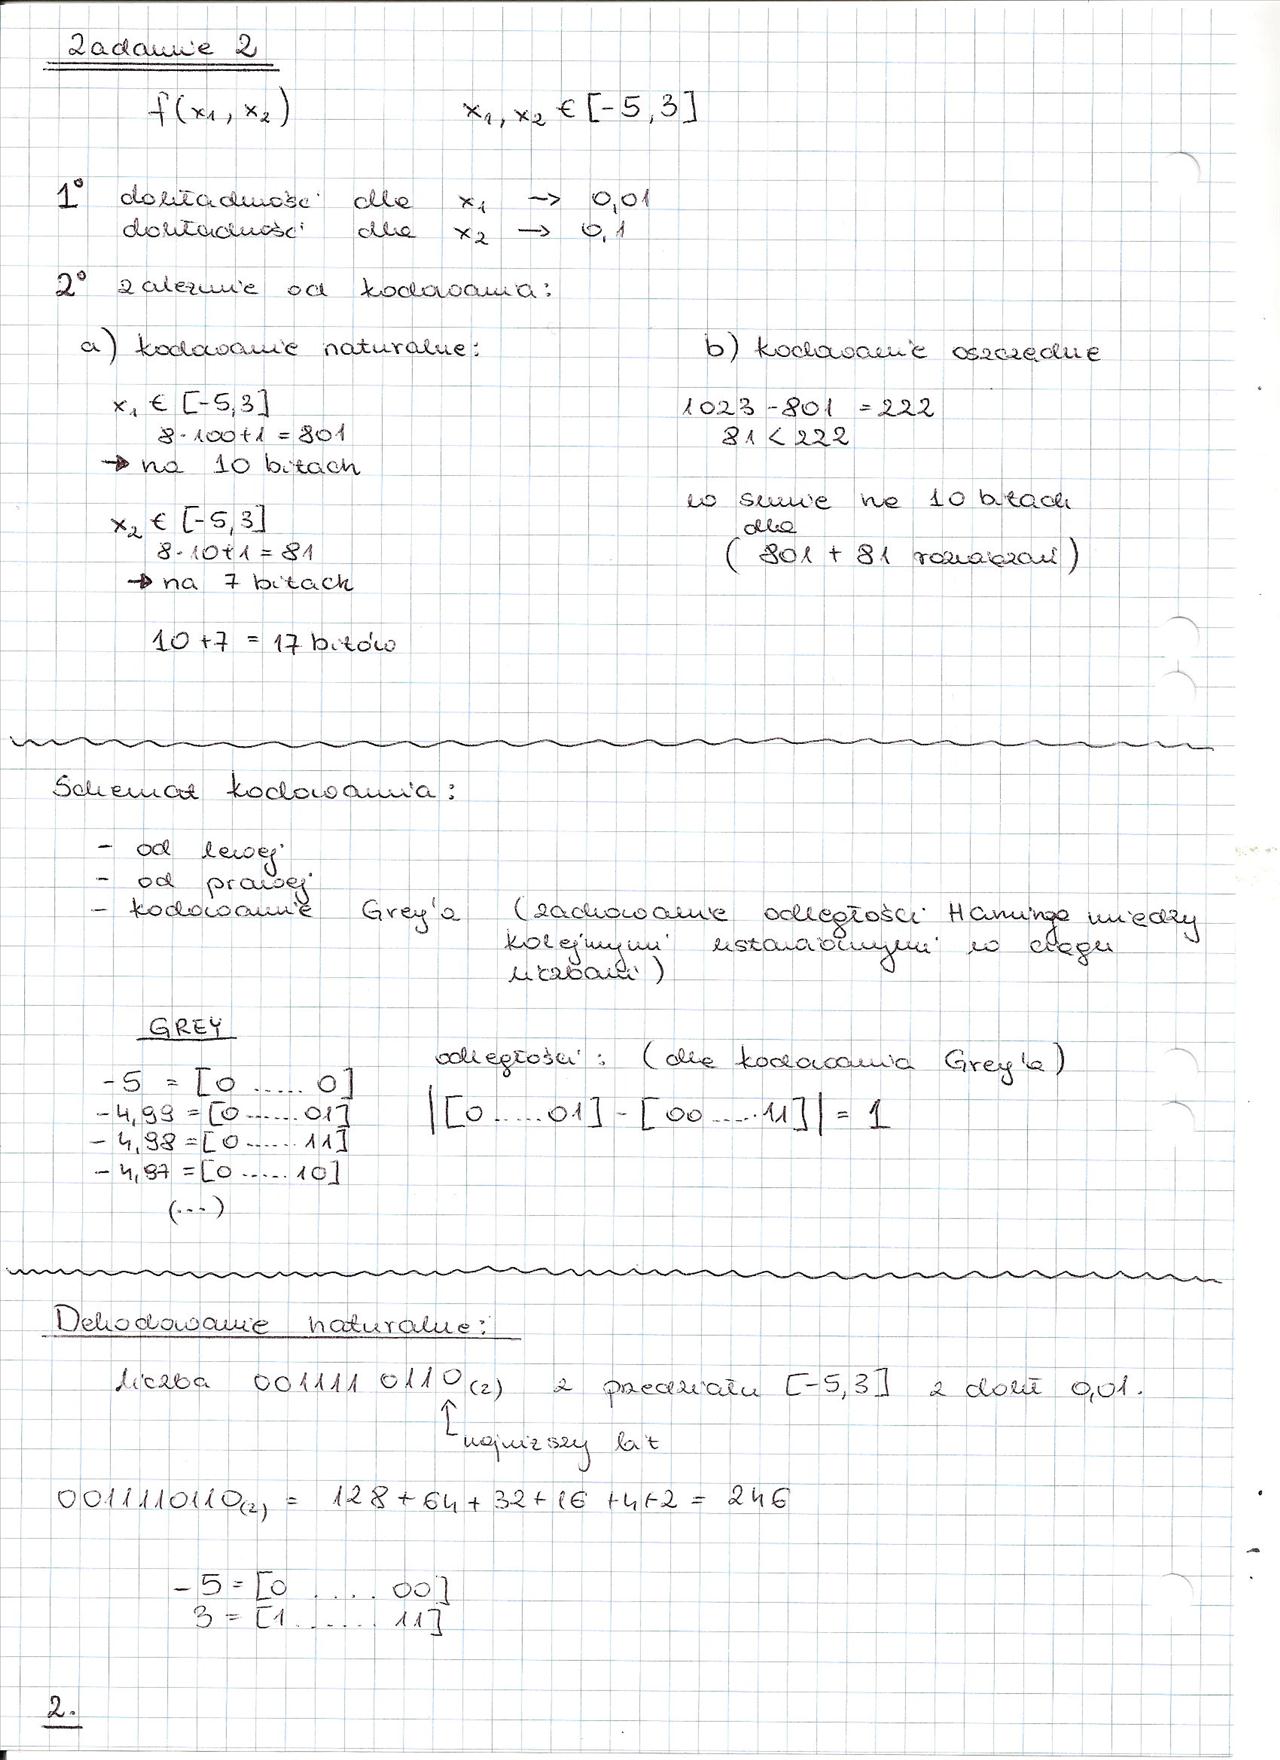 Zadanie 2
f(x₁, x₂) x₁, x₂ € [-5, 3]
1° dokładność dla x₁ → 0,01
dokładność dla x₂ → 0,1
2° zależnie od kodowania:
a) kodowanie naturalne:
x₁ € [-5, 3]
8·100+1 = 801
→ na 10 bitach
x₂ € [-5, 3]
8·10+1 = 81
→ na 7 bitach
10+7 = 17 bitów
b) kodowanie oszczędne
1023 - 801 = 222
81 < 222
w sumie na 10 bitach
dla
( 801 + 81 rozwiązań )
Schemat kodowania:
- od lewej
- od prawej
- kodowanie Grey'a (zachowanie odległości Haminga między
kolejnymi ustawionymi w ciągu
liczbami)
GREY
-5 = [0 ..... 0]
-4,99 = [0 ...... 01]
-4,98 = [0 ...... 11]
-4,97 = [0 ..... 10]
(...)
odległości: (dla kodowania Grey'a)
|[0 ..... 01] - [00 ..... 11]| = 1
Dekodowanie naturalne:
liczba 0011110110(2) z przedziału [-5, 3] z dokł 0,01.
najniższy bit
0011110110(2) = 128 + 64 + 32 + 16 + 4 + 2 = 246
-5 = [0 .... 00]
3 = [1 ...... 11]
2.